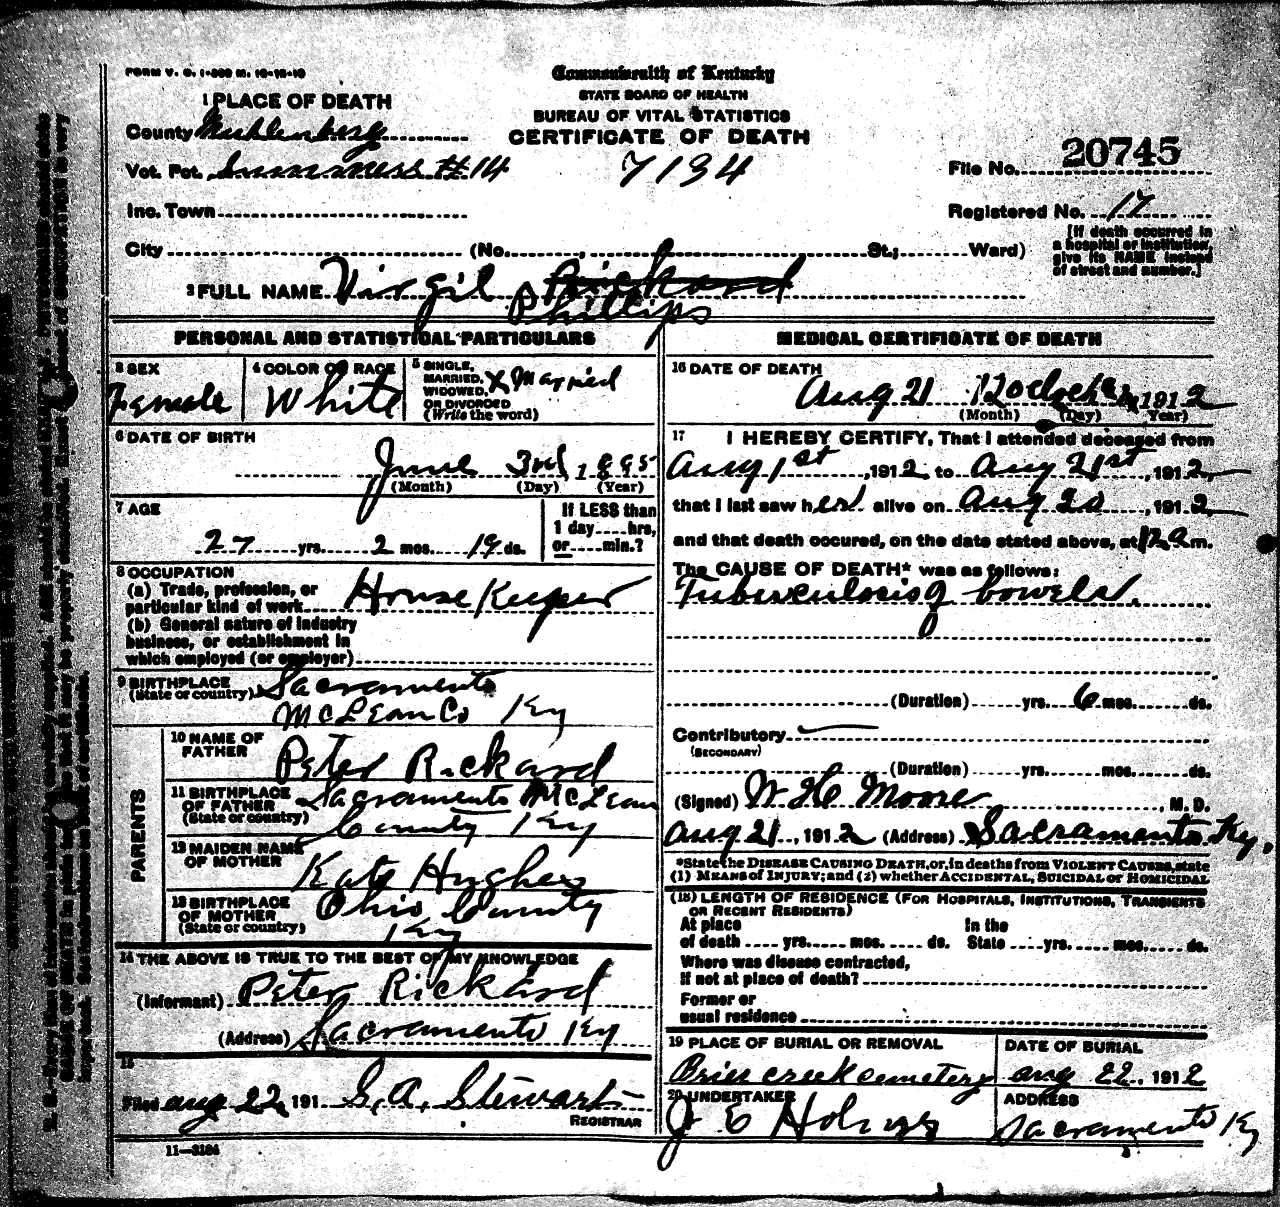 FORM V. S. 1-300 M. 10-18-10
Commonwealth of Kentucky
STATE BOARD OF HEALTH
BUREAU OF VITAL STATISTICS
CERTIFICATE OF DEATH
7134
1 PLACE OF DEATH
County Muhlenberg
Vot. Pct. #14
File No. 20745
Inc. Town
Registered No. 17
City (No. , St.; Ward)
[If death occurred in a hospital or institution, give its NAME instead of street and number.]
2 FULL NAME Virgil Rickard
Phillips
PERSONAL AND STATISTICAL PARTICULARS
3 SEX
Female
4 COLOR OR RACE
White
5 SINGLE, MARRIED, WIDOWED, OR DIVORCED
(Write the word)
X Married
6 DATE OF BIRTH
June 3rd, 1885
(Month) (Day) (Year)
7 AGE
27 yrs. 2 mos. 19 ds.
If LESS than
1 day.....hrs,
or.....min.?
8 OCCUPATION
(a) Trade, profession, or
particular kind of work House Keeper
(b) General nature of industry
business, or establishment in
which employed (or employer)
9 BIRTHPLACE
(State or country) Sacramento
McLean Co Ky
PARENTS
10 NAME OF
FATHER Peter Rickard
11 BIRTHPLACE
OF FATHER
(State or country) Sacramento McLean
County Ky
12 MAIDEN NAME
OF MOTHER Kate Hughes
13 BIRTHPLACE
OF MOTHER
(State or country) Ohio County
Ky
14 THE ABOVE IS TRUE TO THE BEST OF MY KNOWLEDGE
(Informant) Peter Rickard
(Address) Sacramento Ky
15
Filed Aug 22, 191 G. A. Stewart
REGISTRAR
11-3184
MEDICAL CERTIFICATE OF DEATH
16 DATE OF DEATH
Aug 21 12 oclock 1912
(Month) (Day) (Year)
17 I HEREBY CERTIFY, That I attended deceased from
Aug 1st, 1912 to Aug 21st, 1912
that I last saw her alive on Aug 20, 1912
and that death occured, on the date stated above, at 12 a m.
The CAUSE OF DEATH* was as follows:
Tuberculosis of bowels.
(Duration) yrs. 6 mos. ds.
Contributory
(SECONDARY)
(Duration) yrs. mos. ds.
(Signed) W H Moore, M. D.
Aug 21, 1912 (Address) Sacramento Ky.
*State the DISEASE CAUSING DEATH, or, in deaths from VIOLENT CAUSES, state
(1) MEANS OF INJURY; and (2) whether ACCIDENTAL, SUICIDAL or HOMICIDAL
(18) LENGTH OF RESIDENCE (FOR HOSPITALS, INSTITUTIONS, TRANSIENTS
OR RECENT RESIDENTS)
At place
of death .... yrs. mos. .... ds.
In the
State .... yrs. mos. ds.
Where was disease contracted,
if not at place of death?
Former or
usual residence
19 PLACE OF BURIAL OR REMOVAL
Brier creek cemetery
DATE OF BURIAL
Aug 22, 1912
20 UNDERTAKER
J E
ADDRESS
Sacramento Ky